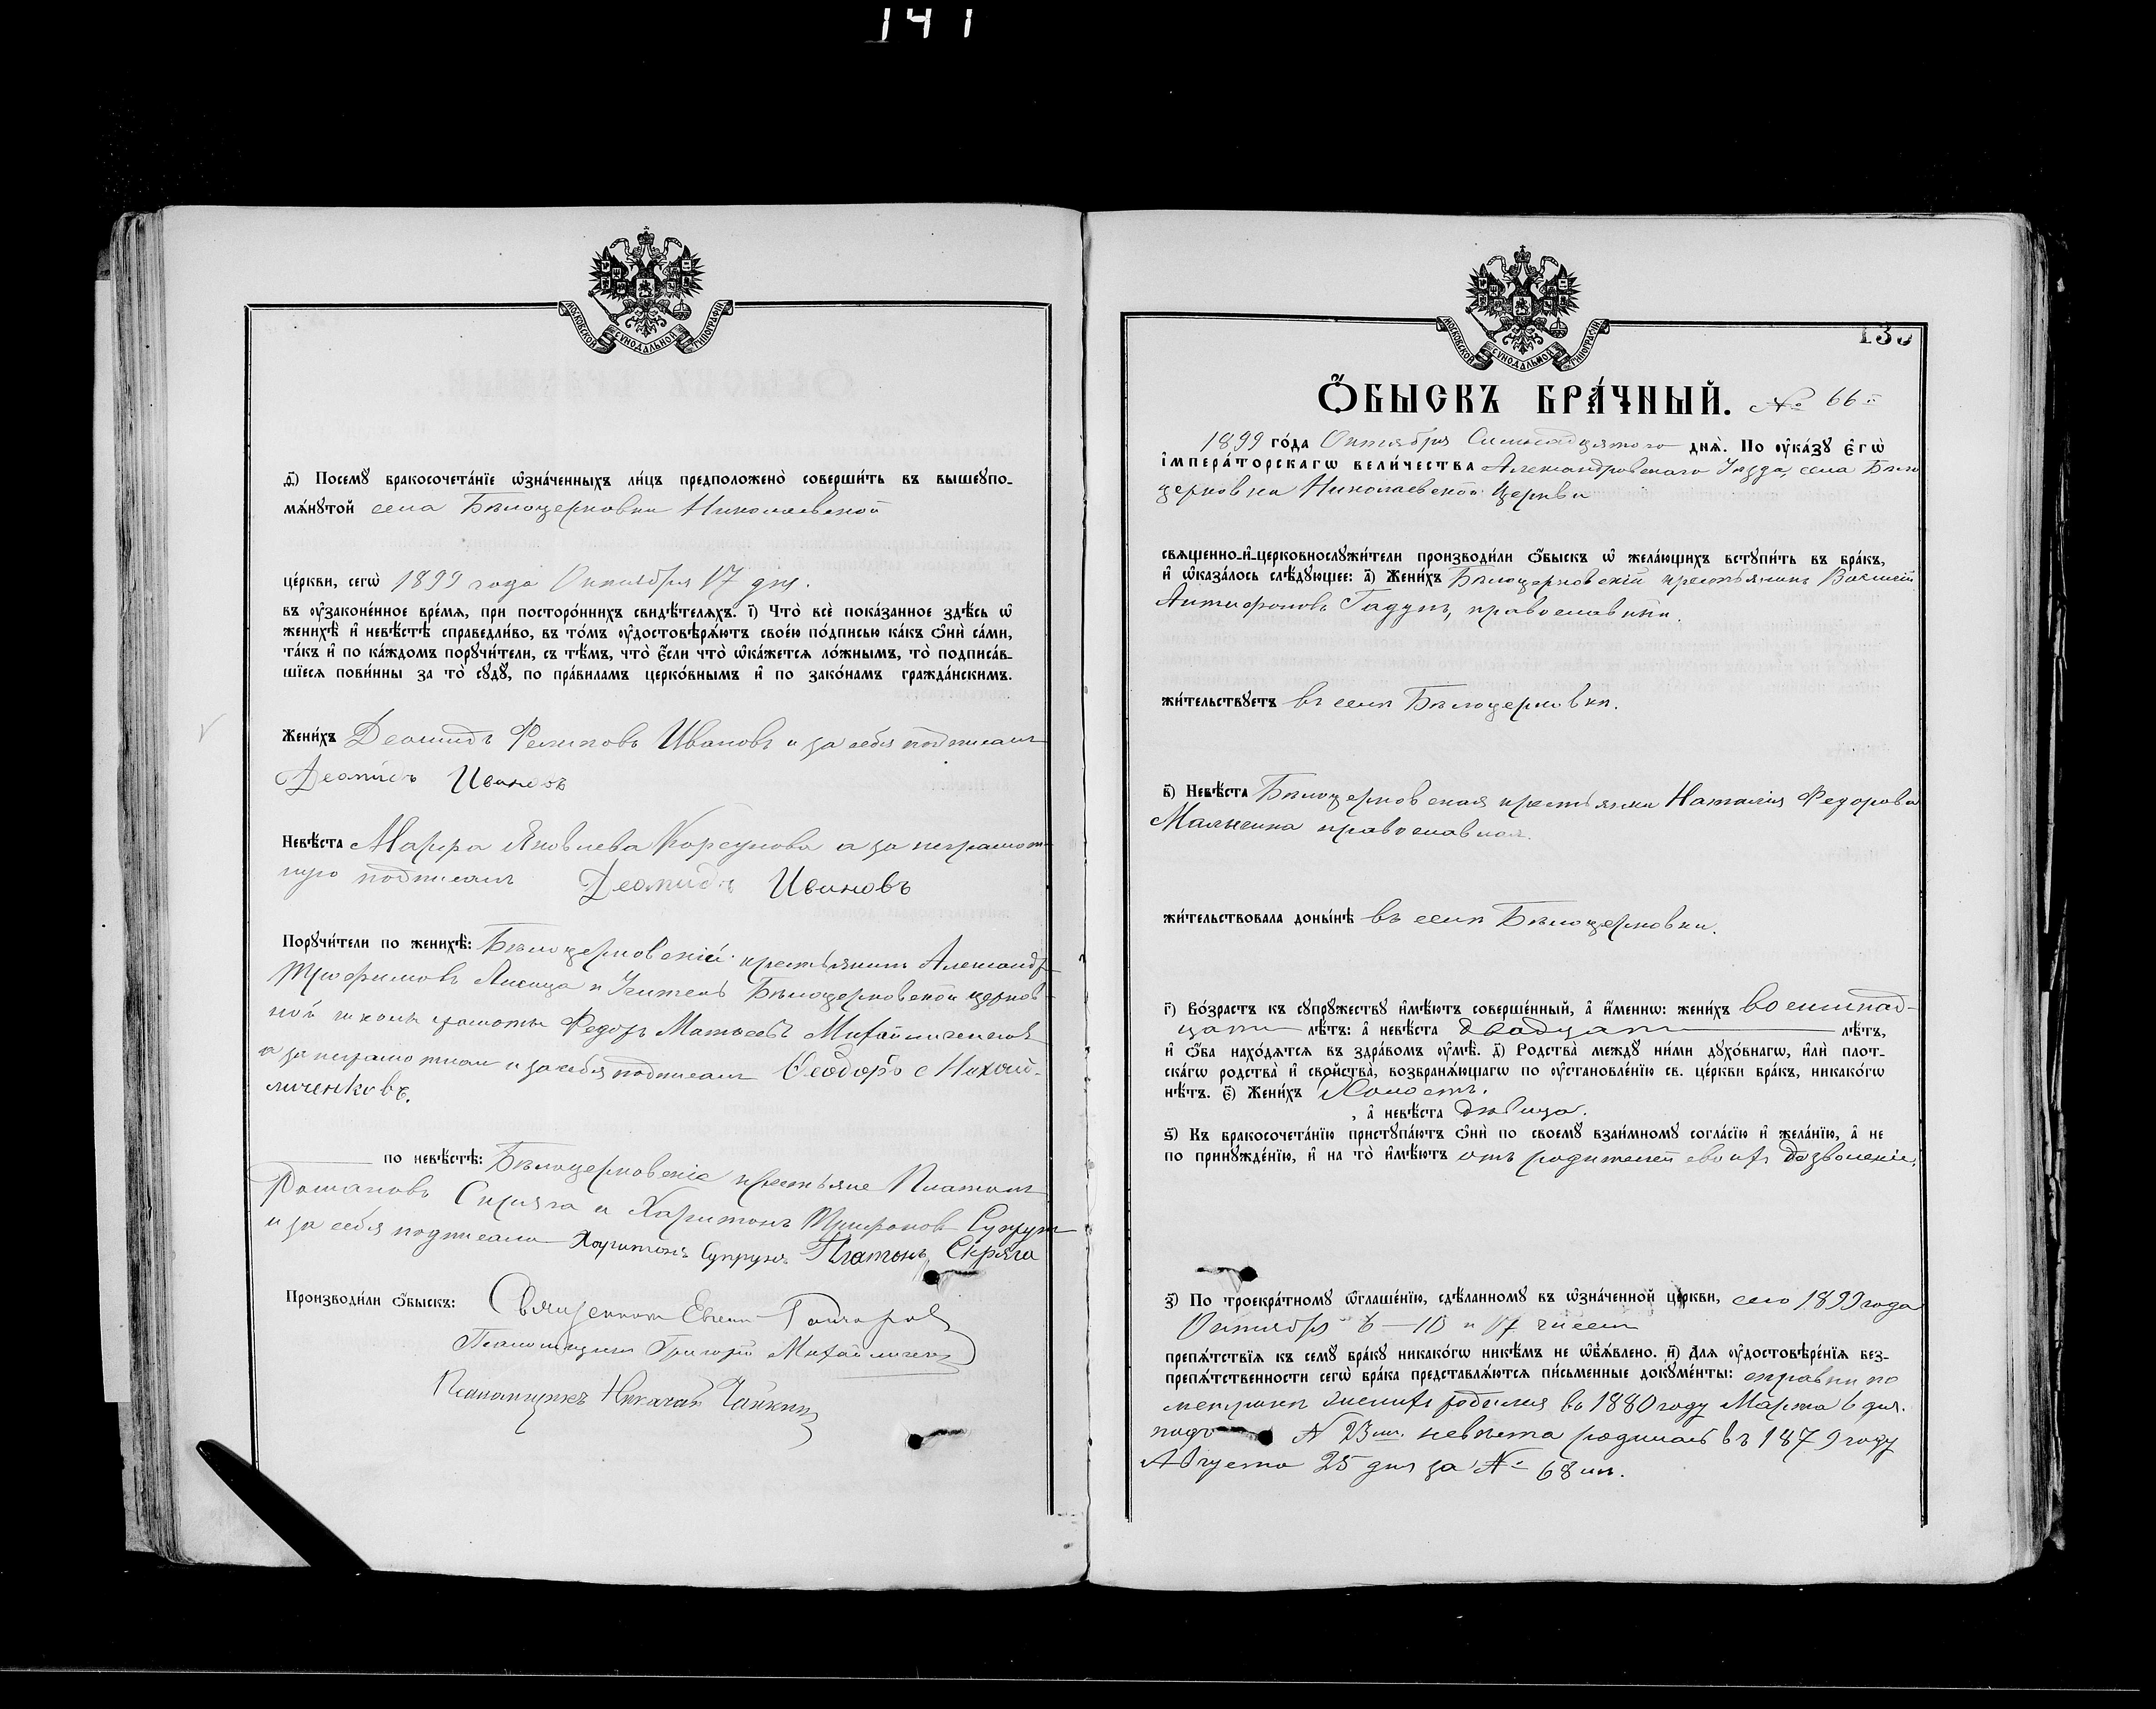 141
МОСКОВСКОЙ СѴНОДАЛЬНОЙ ТИПОГРАФІИ
д҃) Посемꙋ бракосочета́нїе ѡ҆зна́ченныхъ ли́цъ предположено̀ соверши́ть въ вышеꙋпо-
мѧ́нꙋтой села Бѣлоцерковки Николаевской
це́ркви, сегѡ̀ 1899 года Октября 17 дня.
въ ᲂу҆зако́ненное вре́мѧ, при посторо́ннихъ свидѣ́телѧхъ. і҃) Что̀ всѐ пока́занное здѣ́сь ѡ҆
женихѣ̀ и҆ невѣ́стѣ справедли́во, въ то́мъ ᲂу҆достовѣрѧ́ютъ свое́ю по́дписью ка́къ ѻ҆нѝ са́ми,
та́къ и҆ по ка́ждомъ порꙋчи́тели, съ тѣ́мъ, что̀ є҆́сли что̀ ѡ҆ка́жетсѧ ло́жнымъ, то̀ подписа́в-
шїесѧ пови́нны за то̀ сꙋдꙋ̀, по пра́виламъ церко́внымъ и҆ по зако́намъ гражда́нскимъ.
Жени́хъ Деомидъ Филиповъ Ивановъ и за себя подписалъ
Деомидъ Ивановъ
Невѣ́ста Марфа Яковлева Корсунова а за неграмот-
ную подписалъ Деомидъ Ивановъ
Порꙋчи́тели по женихѣ̀: Бѣлоцерковскій крестьянинъ Александръ
Трофимовъ Лисица и Учитель Бѣлоцерковской церков-
ной школы грамоты Федоръ Матвеевъ Михайличенковъ
а за неграмотнаго и за себя подписалъ Ѳеодоръ Михай-
личенковъ.
по невѣ́стѣ: Бѣлоцерковскіе крестьяне Платонъ
Романовъ Скряга и Харитонъ Трифоновъ Супрунъ
и за себя подписали Харитонъ Супрунъ Платонъ Скряга
Производи́ли ѻ҆́быскъ: Священникъ Евгеній Гончаровъ
Псаломщикъ Григорій Михайличенко
Псаломщикъ Николай Чайкинъ
МОСКОВСКОЙ СѴНОДАЛЬНОЙ ТИПОГРАФІИ
Ѻ҆́БЫСКЪ БРА́ЧНЫЙ. № 66й
1899 го́да Октября Семнадцятого днѧ̀. По ᲂу҆ка́зꙋ є҆гѡ̀
і҆мпера́торскагѡ вели́чества Александровскаго Уѣзда, села Бѣло
церковки Николаевской Церкви
свѧщенно-и҆-церковнослꙋжи́тели производи́ли ѻ҆́быскъ ѡ҆ жела́ющихъ встꙋпи́ть въ бра́къ,
и҆ ѡ҆каза́лось слѣ́дꙋющее: а҃) Жени́хъ Бѣлоцерковскій крестьянинъ Василій
Антифоновъ Гадунъ, православный.
жи́тельствꙋетъ въ селѣ Бѣлоцерковкѣ.
в҃) Невѣ́ста Бѣлоцерковская крестьянка Наталія Федорова
православная.
жи́тельствовала доны́нѣ въ селѣ Бѣлоцерковки.
г҃) Во́зрастъ къ сꙋпрꙋжествꙋ и҆мѣ́ютъ соверше́нный, а҆ и҆́меннѡ: жени́хъ восемнад-
цати лѣ́тъ: а҆ невѣ́ста двадцати лѣ́тъ,
и҆ ѻ҆́ба нахо́дѧтсѧ въ здра́вомъ ᲂу҆мѣ̀. д҃) Родства̀ междꙋ̀ ни́ми дꙋхо́внагѡ, и҆лѝ плот-
ска́гѡ родства̀ и҆ сво́йства, возбранѧ́ющагѡ по ᲂу҆становле́нїю св. це́ркви бра́къ, никако́гѡ
нѣ́тъ. є҃) Жени́хъ Холостъ.
, а҆ невѣ́ста дѣвица.
ѕ҃) Къ бракосочета́нїю пристꙋпа́ютъ ѻ҆нѝ по своемꙋ̀ взаи́мномꙋ согла́сїю и҆ жела́нїю, а҆ не
по принꙋжде́нїю, и҆ на то̀ и҆мѣ́ютъ отъ родителей своихъ дозволеніе.
з҃) По троекра́тномꙋ ѡ҆глаше́нїю, сдѣ́ланномꙋ въ ѡ҆зна́ченной це́ркви, сего 1899 года
Октября 6-10 и 17 чиселъ
препѧ́тствїѧ къ семꙋ̀ бра́кꙋ никако́гѡ никѣ́мъ не ѡ҆б̾ѧ́влено. и҃) Длѧ ᲂу҆достовѣре́нїѧ без-
препѧ́тственности сегѡ̀ бра́ка представлѧ́ютсѧ пи́сьменные докꙋме́нты: справки по
метрикѣ женихъ родился въ 1880 году Марта 6 дня.
подъ № 23мъ. невѣста родилась въ 1879 году
Августа 25 дня за № 68мъ.